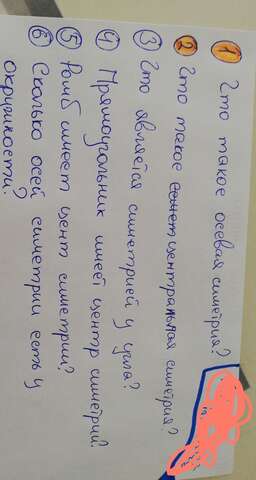 1 Что такое осевая симетрия?
2 Что такое центральная симетрия?
3 Что является симетрией у угла?
4 Прямоугольник имеет центр симетрий?
5 Ромб имеет цент симетрии?
6 Сколько осей симетрии есть у
окружности?